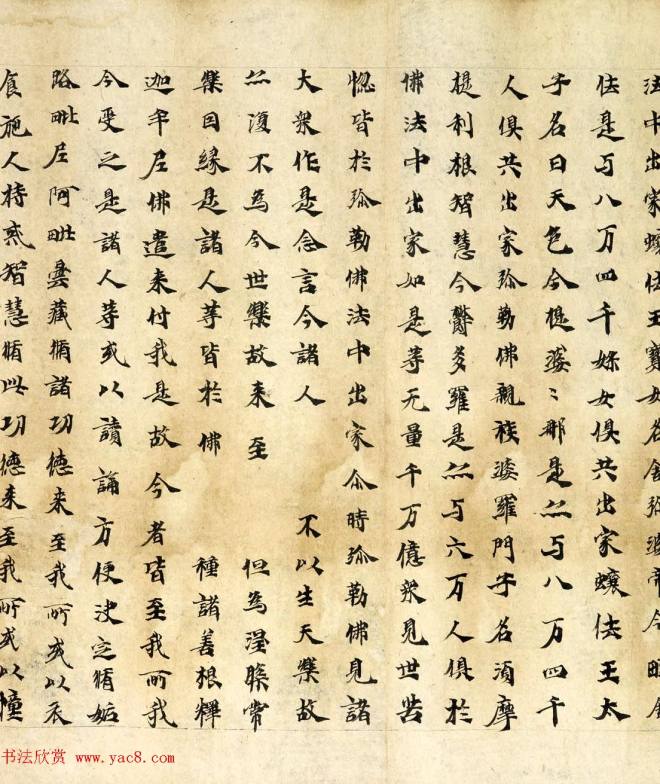 法中出家蠰佉王寳女名舍弥婆帝今
佉是与八万四千婇女俱共出家蠰佉王太
子名曰天色今提婆〻那是亦与八万四千
人俱共出家弥勒佛親族婆羅門子名湏摩
提利根智慧今欝多羅是亦与六万人俱於
佛法中出家如是等无量千万億衆見世苦
惱皆於弥勒佛法中出家尒時弥勒佛見諸
大衆作是念言今諸人 不以生天樂故
亦復不為今世樂故来至 但為涅槃常
樂因縁是諸人等皆於佛 種諸善根釋
迦牟尼佛遣来付我是故今者皆至我所我
今受之是諸人等或以讀誦方便決定脩妬
路毗尼阿毗曇藏脩諸功德来至我所或以衣
食施人持戒智慧脩此功德来至我所或以幢
书法欣赏 www.yac8.com